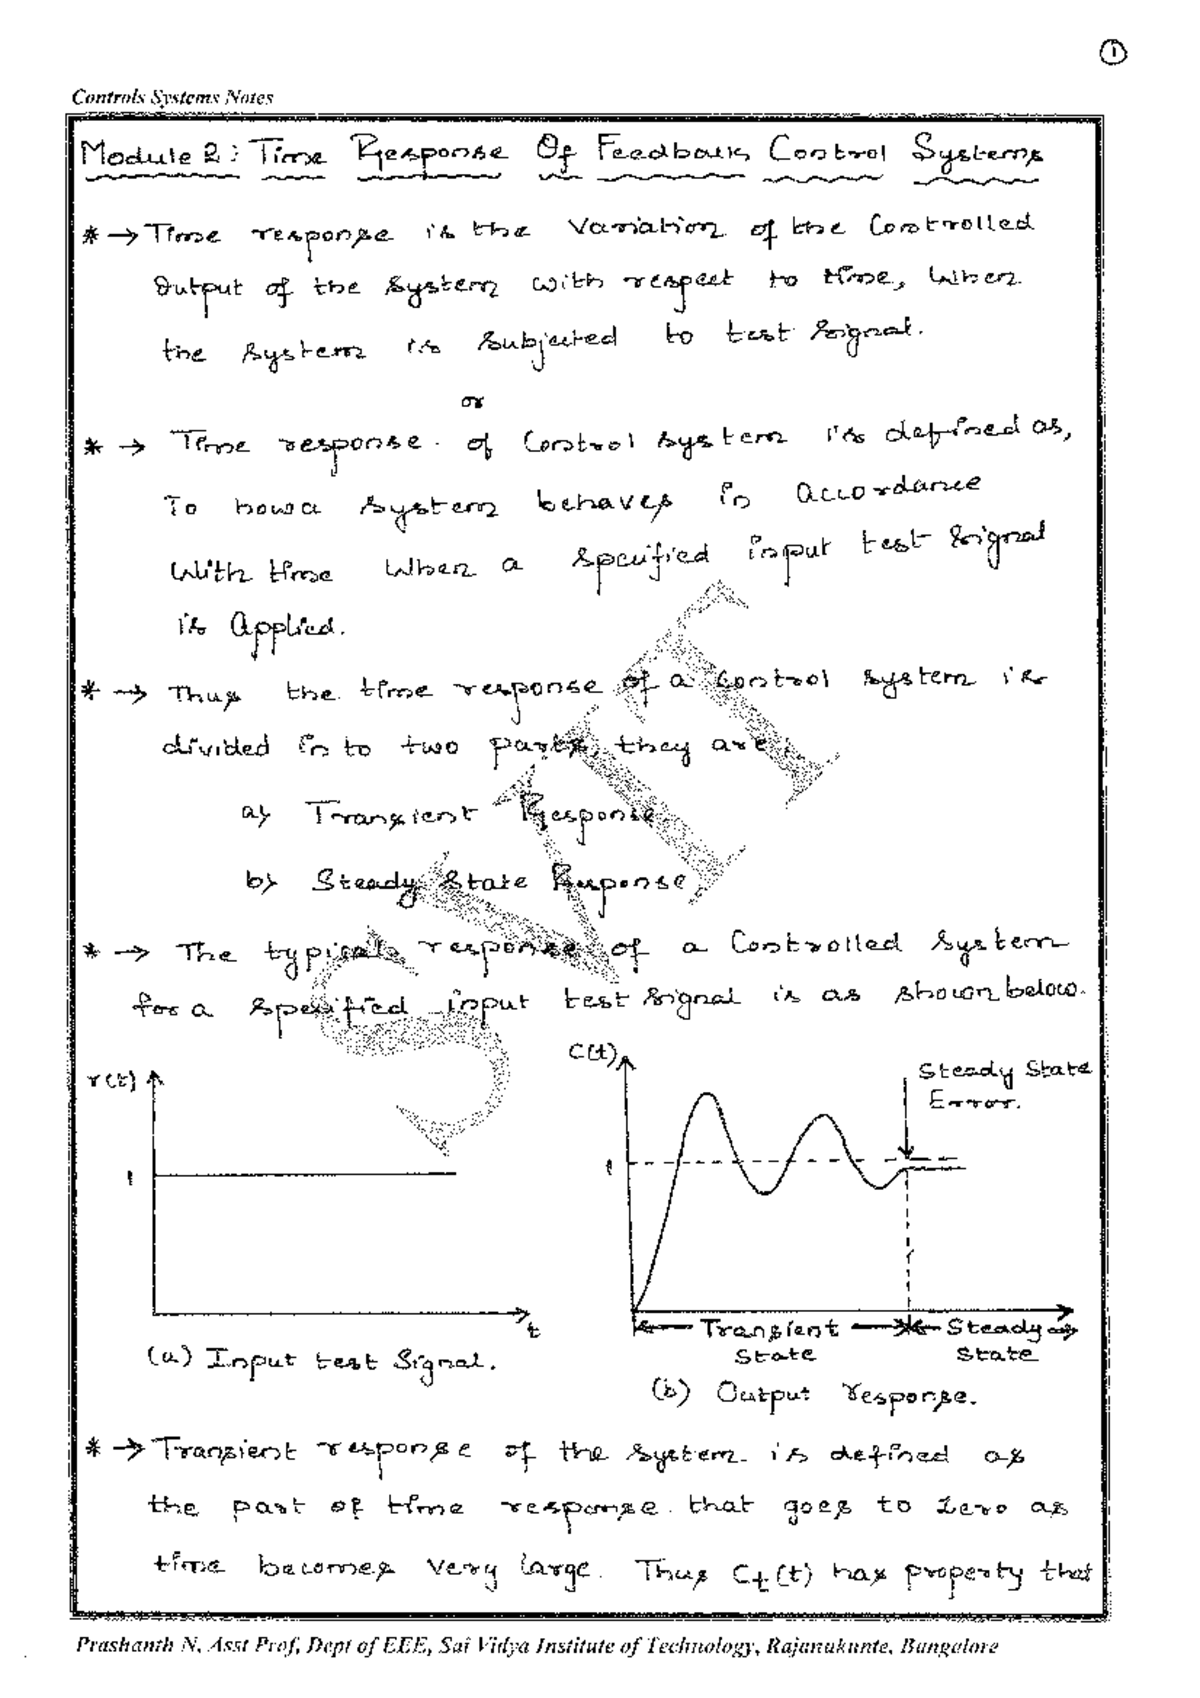 ①
Controls Systems Notes
Module 2: Time Response Of Feedback Control Systems
* → Time response is the Variation of the Controlled
Output of the System with respect to time, When
the system is subjected to test signal.
or
* → Time response of Control system is defined as,
To how a system behaves in accordance
With time When a specified input test signal
is Applied.
* → Thus the time response of a control system is
divided in to two parts, they are,
a) Transient Response.
b) Steady State Response.
* → The typical response of a Controlled System
for a specified input test signal is as shown below.
r(t)
1
t
(a) Input test Signal.
C(t)
Steady State
Error.
1
Transient Steady
State State
(b) Output response.
* → Transient response of the system is defined as
the part of time response that goes to zero as
time becomes very large. Thus Ct(t) has property that
SVIT
Prashanth N, Asst Prof, Dept of EEE, Sai Vidya Institute of Technology, Rajanukunte, Bangalore